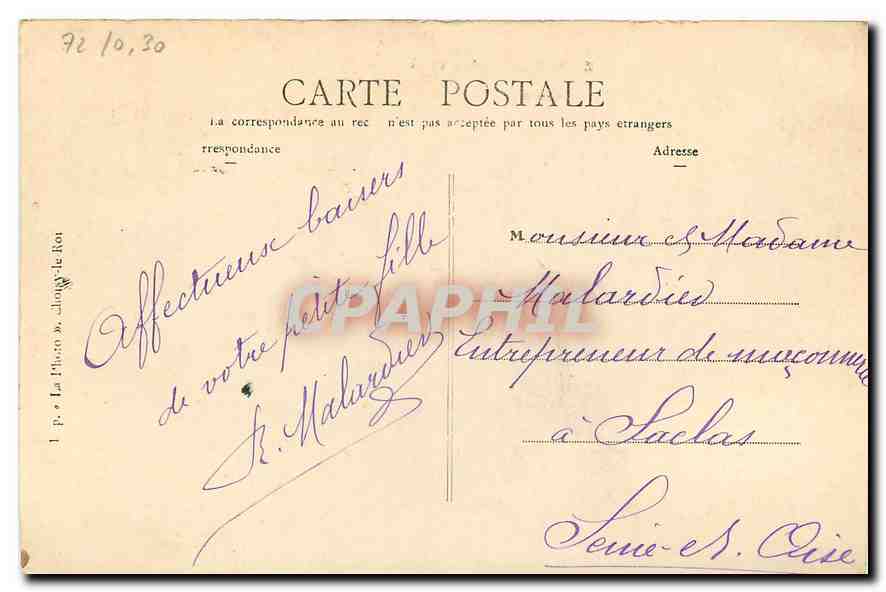 72 / 0,30
CARTE POSTALE
La correspondance au rec n'est pas acceptée par tous les pays etrangers
rrespondance
Adresse
Affectueux baisers
de votre petite fille
R. Malardier
Monsieur et Madame
Malardier
Entrepreneur de maçonnerie
à Saclas
Seine-et-Oise
CPAPHIL
La Photo Choisy-le-Roi